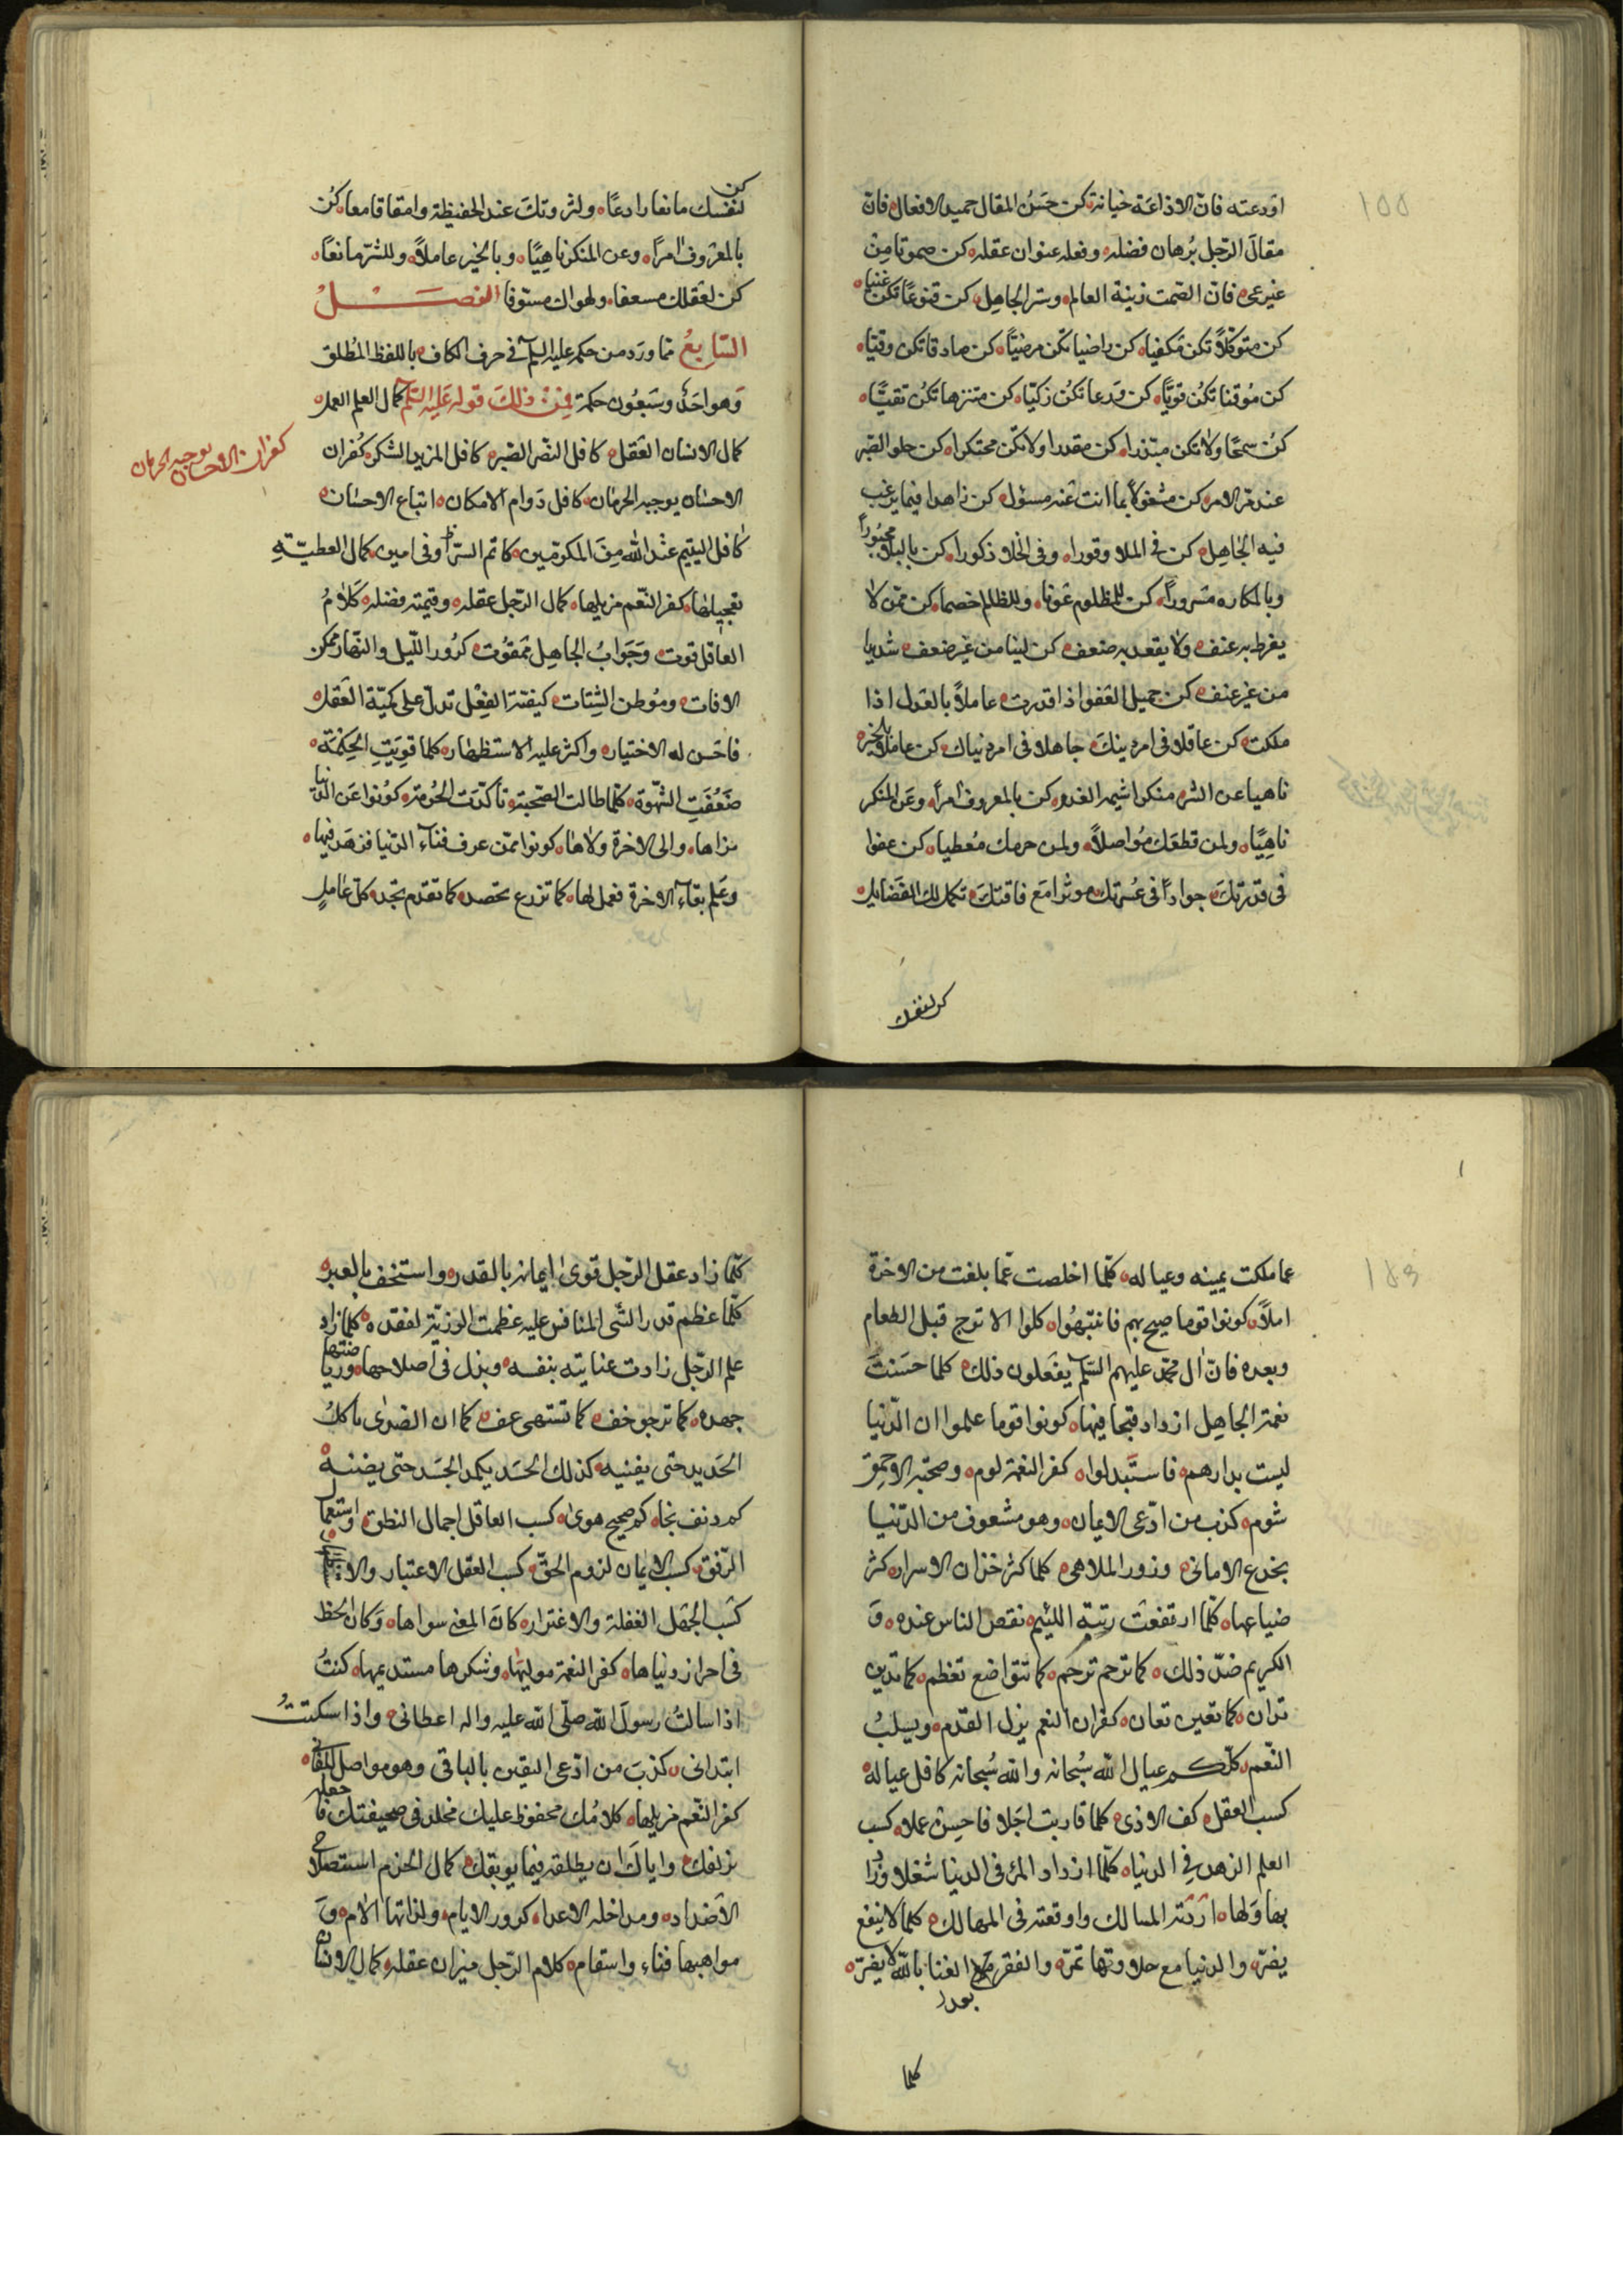 ١٥٥
اودعته فانّ الاذاعة خيانة كن حَسَنُ المقال حميد الافعال فانّ
مقال الرّجل بُرهان فضله وفعله عنوان عقله كن صموتا مِنْ
غير عى فانّ الصّمت زينة العالم وستر الجاهل كن قنوعًا تكن غنيا
كن متوكّلاً تكن مكفيا كن راضيا تكن مرضيًّا كن صادقا تكن وفيّا
كن مُوقنا تكُن قويًّا كن وَرعا تكُن زكيّا كن متنزها تكُن تقيًّا
كُن سمحًا ولا تكن مبّذرا كن مقدرا ولا تكن محتكرا كن حلو الصّبر
عند مرّ الامر كن مشغولاً بما انت عَنه مسؤل كن زاهدا فيما يرغب
فيه الجاهل كن فى الملا وقورا وفى الخلا ذكورا كن بالبلا محبُورا
وبالمكاره مسرورا كن للمظلوم عونا وللظالم خصما كن ممّن لا
يفرط به عنف ولا يقعد به ضعف كن لينا من غير ضعف شديدا
من غير عنف كن جميل العَفو اذا قدرت عاملاً بالعَدل اذا
ملكت كن عاقلا فى امر دينك جاهلا فى امر دنياك كن عاملا بالخير
ناهيا عن الشر منكرا شيمه الغدر كن بالمعروف امراً وعَن المنكر
ناهِيًا ولمن قطعَك مُواصلاً ولمن حرمك مُعطيا كن عفوا
فى قدرتك جواداً فى عُسرتك موثرا مَع فاقتك تكمل لك الفَضايل
كن لنفسك
كن
لنَفسك مانعا رادعًا ولثروتك عند الحفيظة وامقا قامعا كُن
بالمعروف امرًا وعن المنكر ناهِيًا وبالخير عاملاً وللشّر مانعًا
كن لعَقلك مسعفا ولهواك مسّوفا الفصَــل
السّابِعُ ممّا ورَد من حكم عليه السلم فى حرف الكاف باللفظ المُطلق
وَهو احَدٌ وسَبعُون حكمة فمِنْ ذلك قوله عَلَيه السّلم كمال العلم العمل
كمال الانسان العَقل كافل النصّر الصّبر كافل المزيد الشكر كُفران
كفران الاحسان يوجب الحرمان
الاحسَان يوجب الحرمَان كافل دَوام الامكان اتباع الاحسَان
كافل اليتيم عنْدالله مِنَ المكرمّين كاتم السّر وفى امين كمال العطيّة
تعجيلها كفر النّعم مزيلها كمال الرّجل عقله وقيمته فضله كَلامُ
العاقل قوت وَجَوابُ الجاهل ممقُوت كرُور اللّيل والنّهار ممكن
الافات ومُوطن الشتات كيفيّة الفِعْل تدلّ على كميّة العَقل
فاحَسن له الاختيار واكثر عليه الاستظهار كلما قوِيَتِ الحِكمَة
ضَعُفَتِ الشّهوَة كلّما طالت الصّحبة تأكدَت الحُرمة كوُنوا عَن الدّنيا
نزاها والى الاخرة ولاها كونوا ممّن عرف فناء الدّنيا فزهَد فيها
وعَلم بقاء الاخرة فعمل لها كما تزرع تحصد كما تقدم تجد كل عَاملٍ
١٥٦
عما ملكت يمينه وعياله كلّما اخلصت عّما بلغت من الاخرة
املاً كونوا قوما صيح بهم فانتبّهُوا كلوا الاترج قبل الطعام
وبعده فانّ ال محمّد عليهم السّلم يفعَلون ذلك كلما حسَنتَ
نعمة الجاهل ازداد قبحا فيها كونوا قوما علموا ان الدّنيا
ليست بدارهم فاستَبدلوا كفر النعمة لوم وصحبة الاحمق
شوم كذب من ادّعى الايمان وهو مشعوف من الدّنيا
بخدع الامانى وزور الملاهى كلما كثر خزان الاسرار كثر
ضياعها كلّما ارتفعَت رتبة اللئيم نقص الناس عنده وَ
الكريم ضدّ ذلك كما ترحم ترحم كما تتواضع تعظم كما تدين
تدان كما تعين تعان كفران النعم يزل القدَم ويسلبُ
النّعم كلّكم عيال الله سُبحانه والله سُبحانه كافل عياله
كسب العقل كف الاذى كلما قاربت اجَلا فاحسِنْ عملا كسب
العلم الزهد فِى الدنيا كلّما ازداد المرء فى الدنيا شغلا وزاد
بها وَلها ارَدَته المسالك واوقعته فى المهالك كلما لا ينفع
يضرّ والدنيا مع حلاوتها تمرّ والفقر مع الغنا بالله لا يضرّ
كلما
كلّما زاد عقل الرّجل قوى ايمانه بالقدر واستخف بالعبر
كلّما عَظم قدر الشّى المنافس عليه عَظمت الرزيّة لفقده كلما زاد
علم الرّجل زادت عنايته بنفسه وبذل فى اصلاحها ورياضتها
جهده كما ترجو خف كما تشتهى عف كما ان الصَدى ياكلُ
الحَديد حتى يفنيه كذلك الحسَد يكمد الجسَد حتى يضنيه
كم دنف نجا كم صحيح هوى كسب العاقل اجمال النطق واستعمال
الرّفق كسب الايمان لزوم الحقّ كسب العقل الاعتبار
كسَب الجَهل الغفلة والاغترار كانَ المعنى سواها وَكان الحظ
فى احراز دنياها كفر النعمة موليهَا وشكرها مستديمها كنتُ
اذا سالتُ رسولَ الله صلّى الله عليه واله اعطانى واذا سكتتُ
ابتدانى كذبَ من ادّعى اليقين بالباقى وهو مواصل للفانى
كفر النّعم مزيلها كلامُك محفوظ عليك مخلد فى صحيفتك فاجعله
يزلفك واياكَ ان يطلقه فيما يوبقك كمال الحزم استصلاح
الاضداد ومداخلة الاعداء كرور الايام ولذاتها الام وَ
مواهبها فناء واسقام كلام الرّجل ميزان عقله كمال الانسان